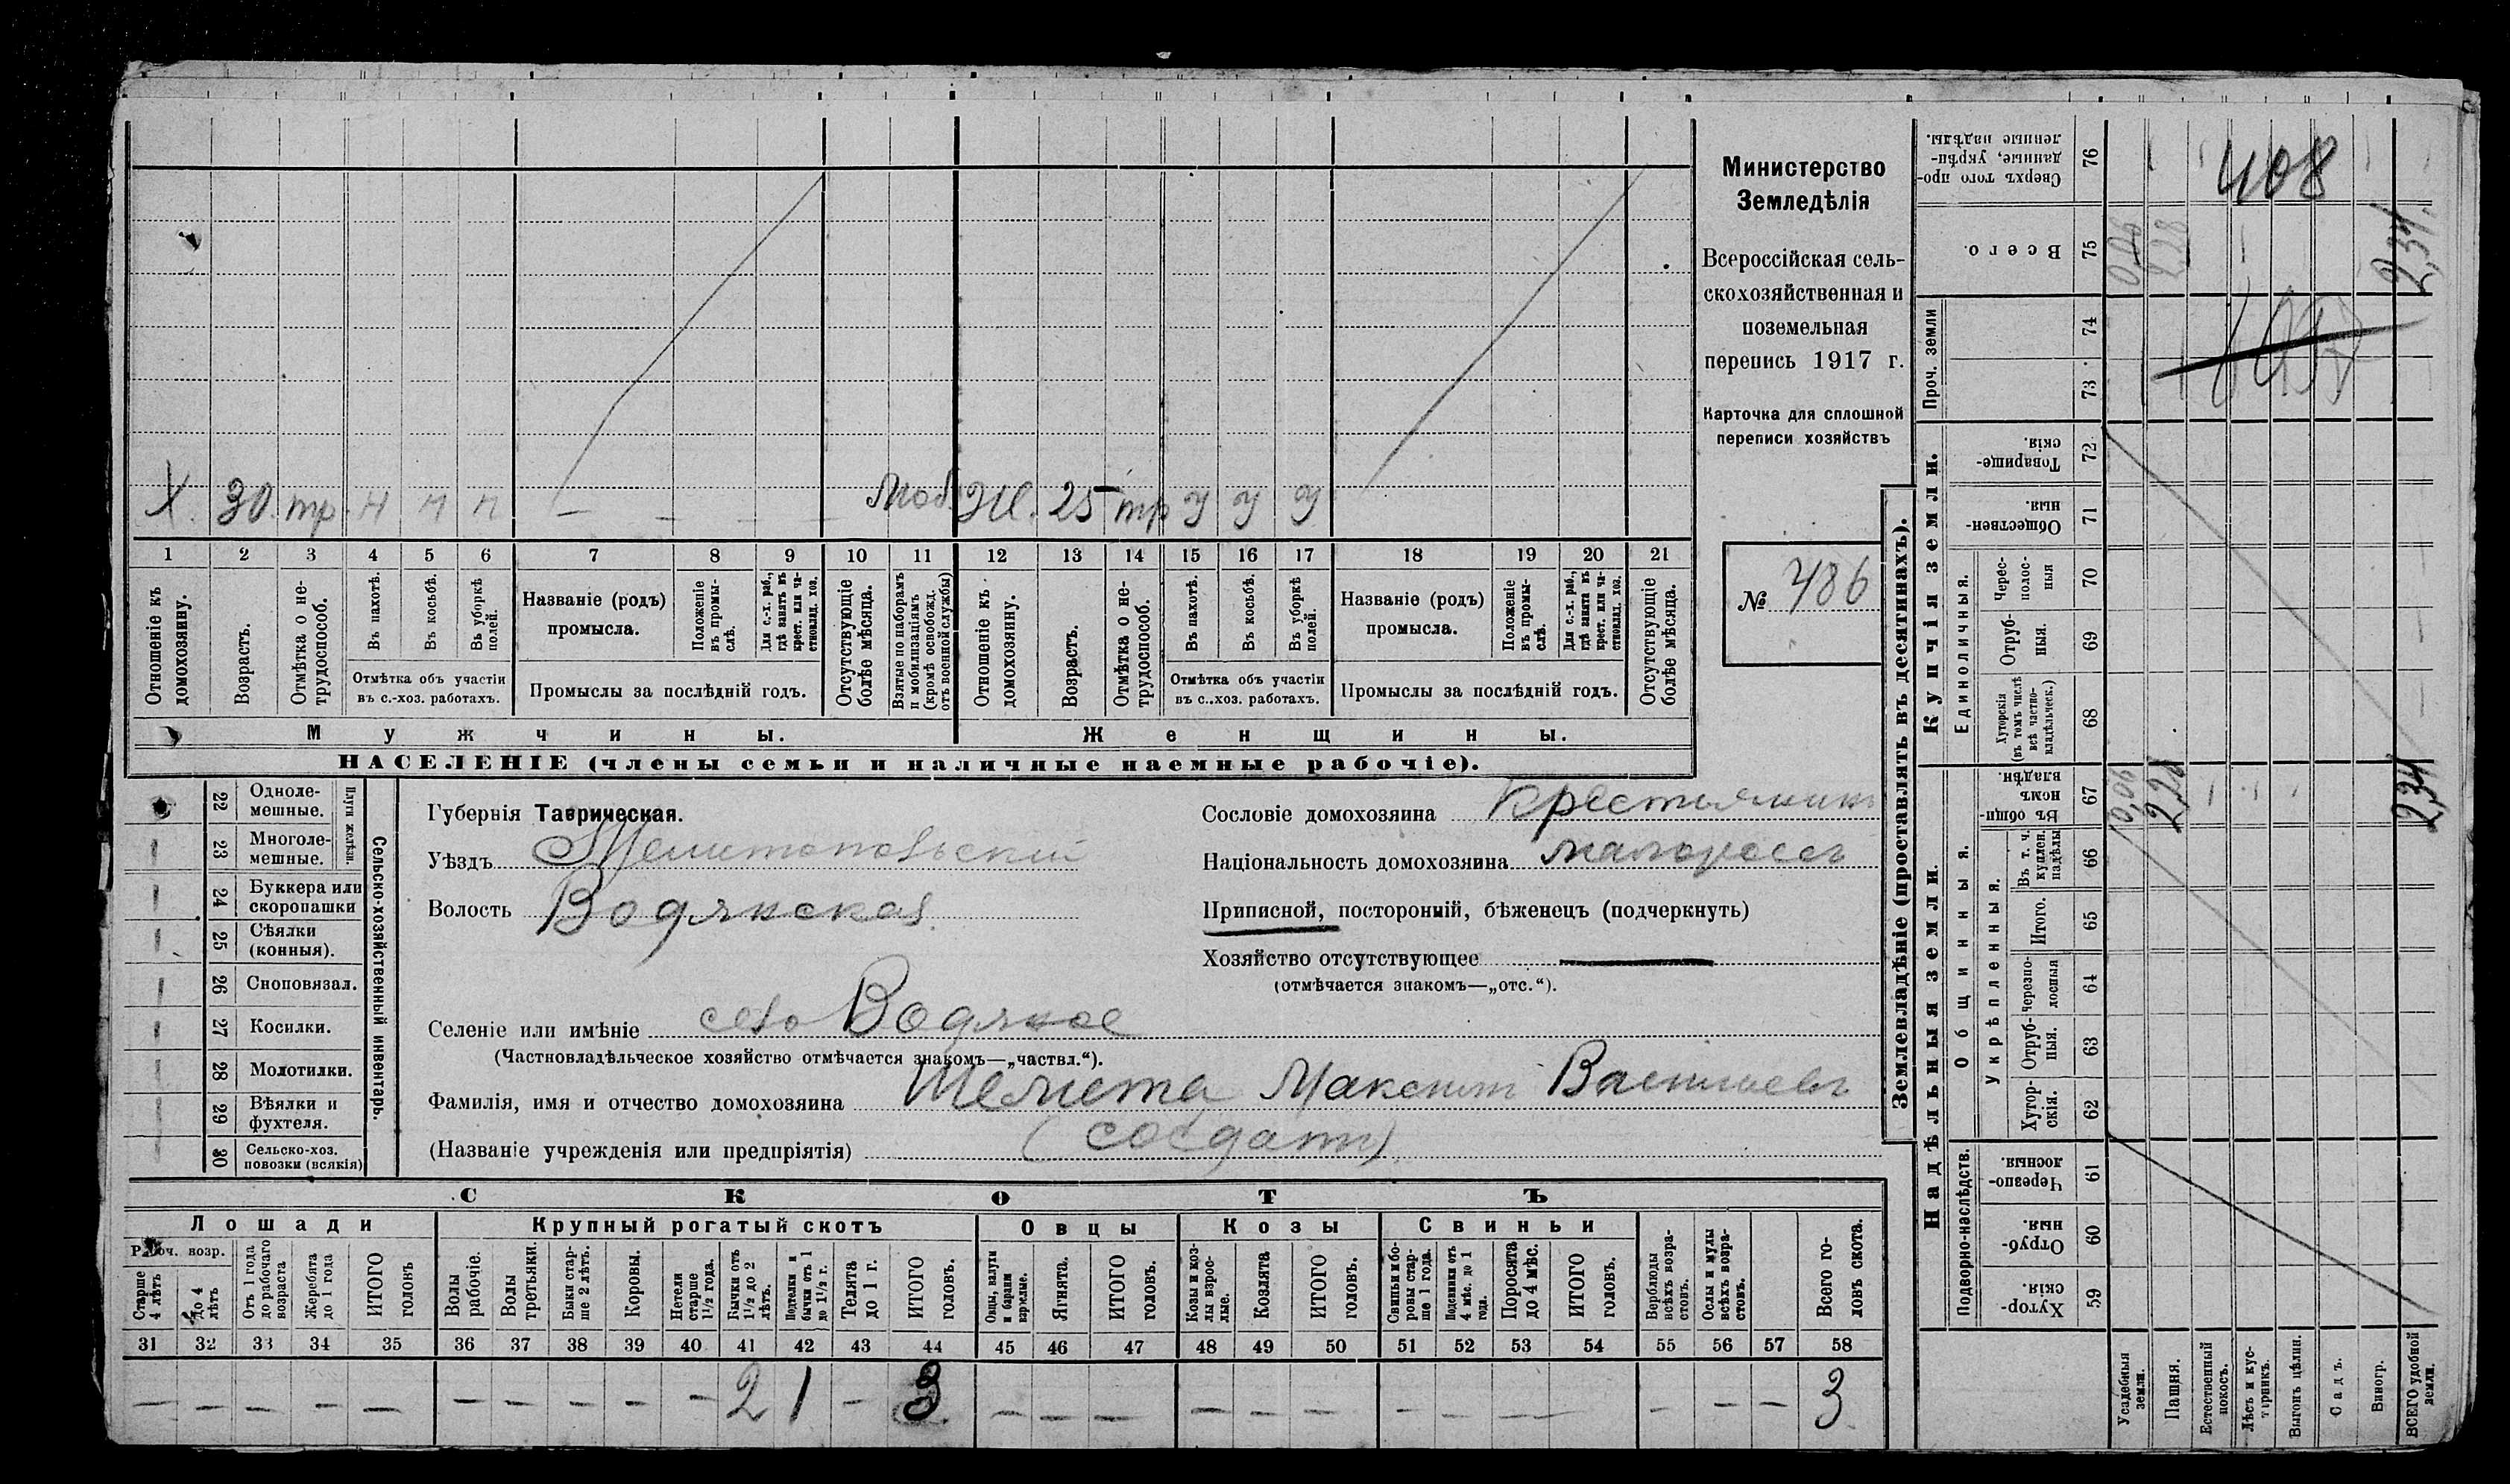 Министерство
Земледѣлія
Всероссійская сель-
скохозяйственная и
поземельная
перепись 1917 г.
Карточка для сплошной
переписи хозяйствъ
№ 486
Х. 30. тр. н н н — — — — Моб. Ж. 25 тр у у у
1 2 3 4 5 6 7 8 9 10 11 12 13 14 15 16 17 18 19 20 21
Отношеніе къ домохозяину.
Возрастъ.
Отмѣтка о не-трудоспособ.
Въ пахотѣ.
Въ косьбѣ.
Въ уборкѣ полей.
Отмѣтка объ участіи
въ с.-хоз. работахъ.
Названіе (родъ)
промысла.
Положеніе въ промы-слѣ.
Для с.-х. раб., гдѣ занятъ въ крест. или ча-стновлад. хоз.
Промыслы за послѣдній годъ.
Отсутствующіе болѣе мѣсяца.
Взятые по наборамъ и мобилизаціямъ (кромѣ освобожд. отъ военной службы)
Отношеніе къ домохозяину.
Возрастъ.
Отмѣтка о не-трудоспособ.
Въ пахотѣ.
Въ косьбѣ.
Въ уборкѣ полей.
Отмѣтка объ участіи
въ с..хоз. работахъ.
Названіе (родъ)
промысла.
Положеніе въ промы-слѣ.
Для с.-х. раб., гдѣ занята въ крест. или ча-стновлад. хоз.
Промыслы за послѣдній годъ.
Отсутствующіе болѣе мѣсяца.
Мужчины. Женщины.
НАСЕЛЕНІЕ (члены семьи и наличные наемные рабочіе).
Сельско-хозяйственный инвентарь.
Плуги желѣзн.
22 Одноле-мешные.
23 Многоле-мешные.
24 Буккера или скоропашки
25 Сѣялки (конныя).
26 Сноповязал.
27 Косилки.
28 Молотилки.
29 Вѣялки и фухтеля.
30 Сельско-хоз. повозки (всякія)
Губернія Таврическая.
Уѣздъ Мелитопольскій
Волость Водянская.
Селеніе или имѣніе село Водяное
(Частновладѣльческое хозяйство отмѣчается знакомъ—„частвл.“).
Фамилія, имя и отчество домохозяина Шелюта Максимъ Васильевъ
(Названіе учрежденія или предпріятія) (солдатъ)
Сословіе домохозяина Крестьянинъ
Національность домохозяина малороссъ
Приписной, посторонній, бѣженецъ (подчеркнуть)
Хозяйство отсутствующее —
(отмѣчается знакомъ—„отс.“).
СКОТЪ
Лошади Крупный рогатый скотъ Овцы Козы Свиньи
Рабоч. возр.
Старше 4 лѣтъ
до 4 лѣтъ
Отъ 1 года до рабочаго возраста
Жеребята до 1 года
ИТОГО головъ
Волы рабочіе.
Волы третьяки.
Быки стар-ше 2 лѣтъ.
Коровы.
Нетели старше 1½ года.
Бычки отъ 1½ до 2 лѣтъ.
Подтелки и бычки отъ 1 до 1½ г.
Телята до 1 г.
ИТОГО головъ.
Овцы, валухи и бараны взрослые.
Ягнята.
ИТОГО головъ.
Козы и коз-лы взрос-лые.
Козлята
ИТОГО головъ.
Свиньи и бо-ровы стар-ше 1 года.
Подсвинки отъ 4 мѣс. до 1 года.
Поросята до 4 мѣс.
ИТОГО головъ.
Верблюды всѣхъ возра-стовъ.
Ослы и мулы всѣхъ возра-стовъ.
Всего го-ловъ скота.
31 32 33 34 35 36 37 38 39 40 41 42 43 44 45 46 47 48 49 50 51 52 53 54 55 56 57 58
— — — — — — — — — — 2 1 — 3 — — — — — — — — — — — — — 3
Землевладѣніе (проставлять въ десятинахъ).
Надѣльныя земли. Купчія земли. Проч. земли
Подворно-наслѣдств.
Общинныя.
Укрѣпленныя.
Единоличныя.
59 Хутор-скія
60 Отруб-ныя.
61 Черезпо-лосныя.
62 Хутор-скія.
63 Отруб-ныя.
64 Черезпо-лосныя
65 Итого.
66 Въ т. ч. куплен. надѣлы
67 Въ общи-номъ владѣн.
68 Хуторскія (въ томъ числѣ всѣ частно-владѣльческ.)
69 Отруб-ныя.
70 Черес-полос-ныя
71 Обществен-ныя
72 Товарище-скія.
73
74
75 Всего.
76 Сверхъ того про-данные, укрѣп-ленные надѣлы.
Усадебныя земли.
Пашня.
Естественный покосъ.
Лѣсъ и кус-тарникъ.
Выгонъ цѣлин.
Садъ.
Виногр.
ВСЕГО удобной земли.
0,06 2,28 2,34
0,06 2,28 2,34
408